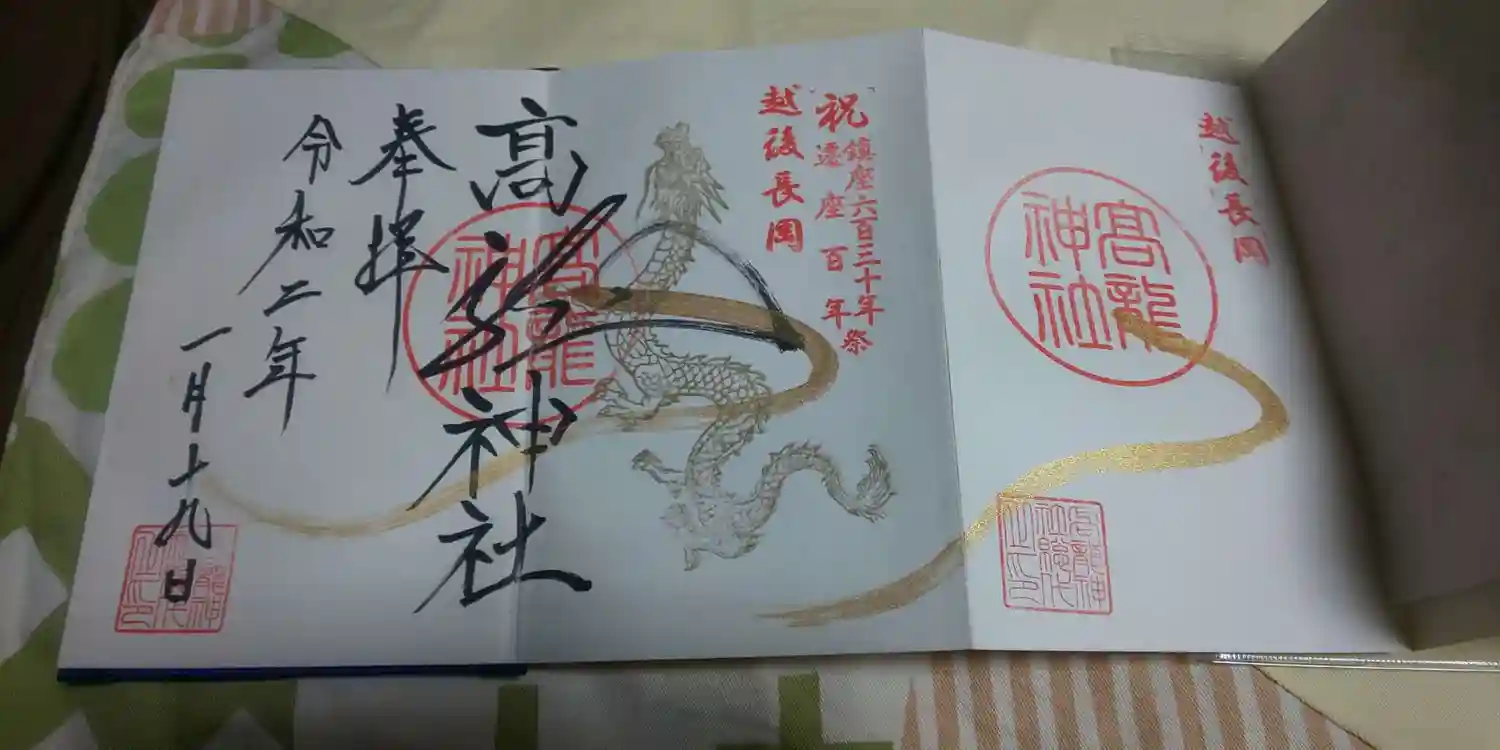 越後長岡
髙龍神社
祝
鎮座六百三十年祭
遷座百年
越後長岡
髙龍神社
髙龍神社
奉拝
令和二年
一月十九日